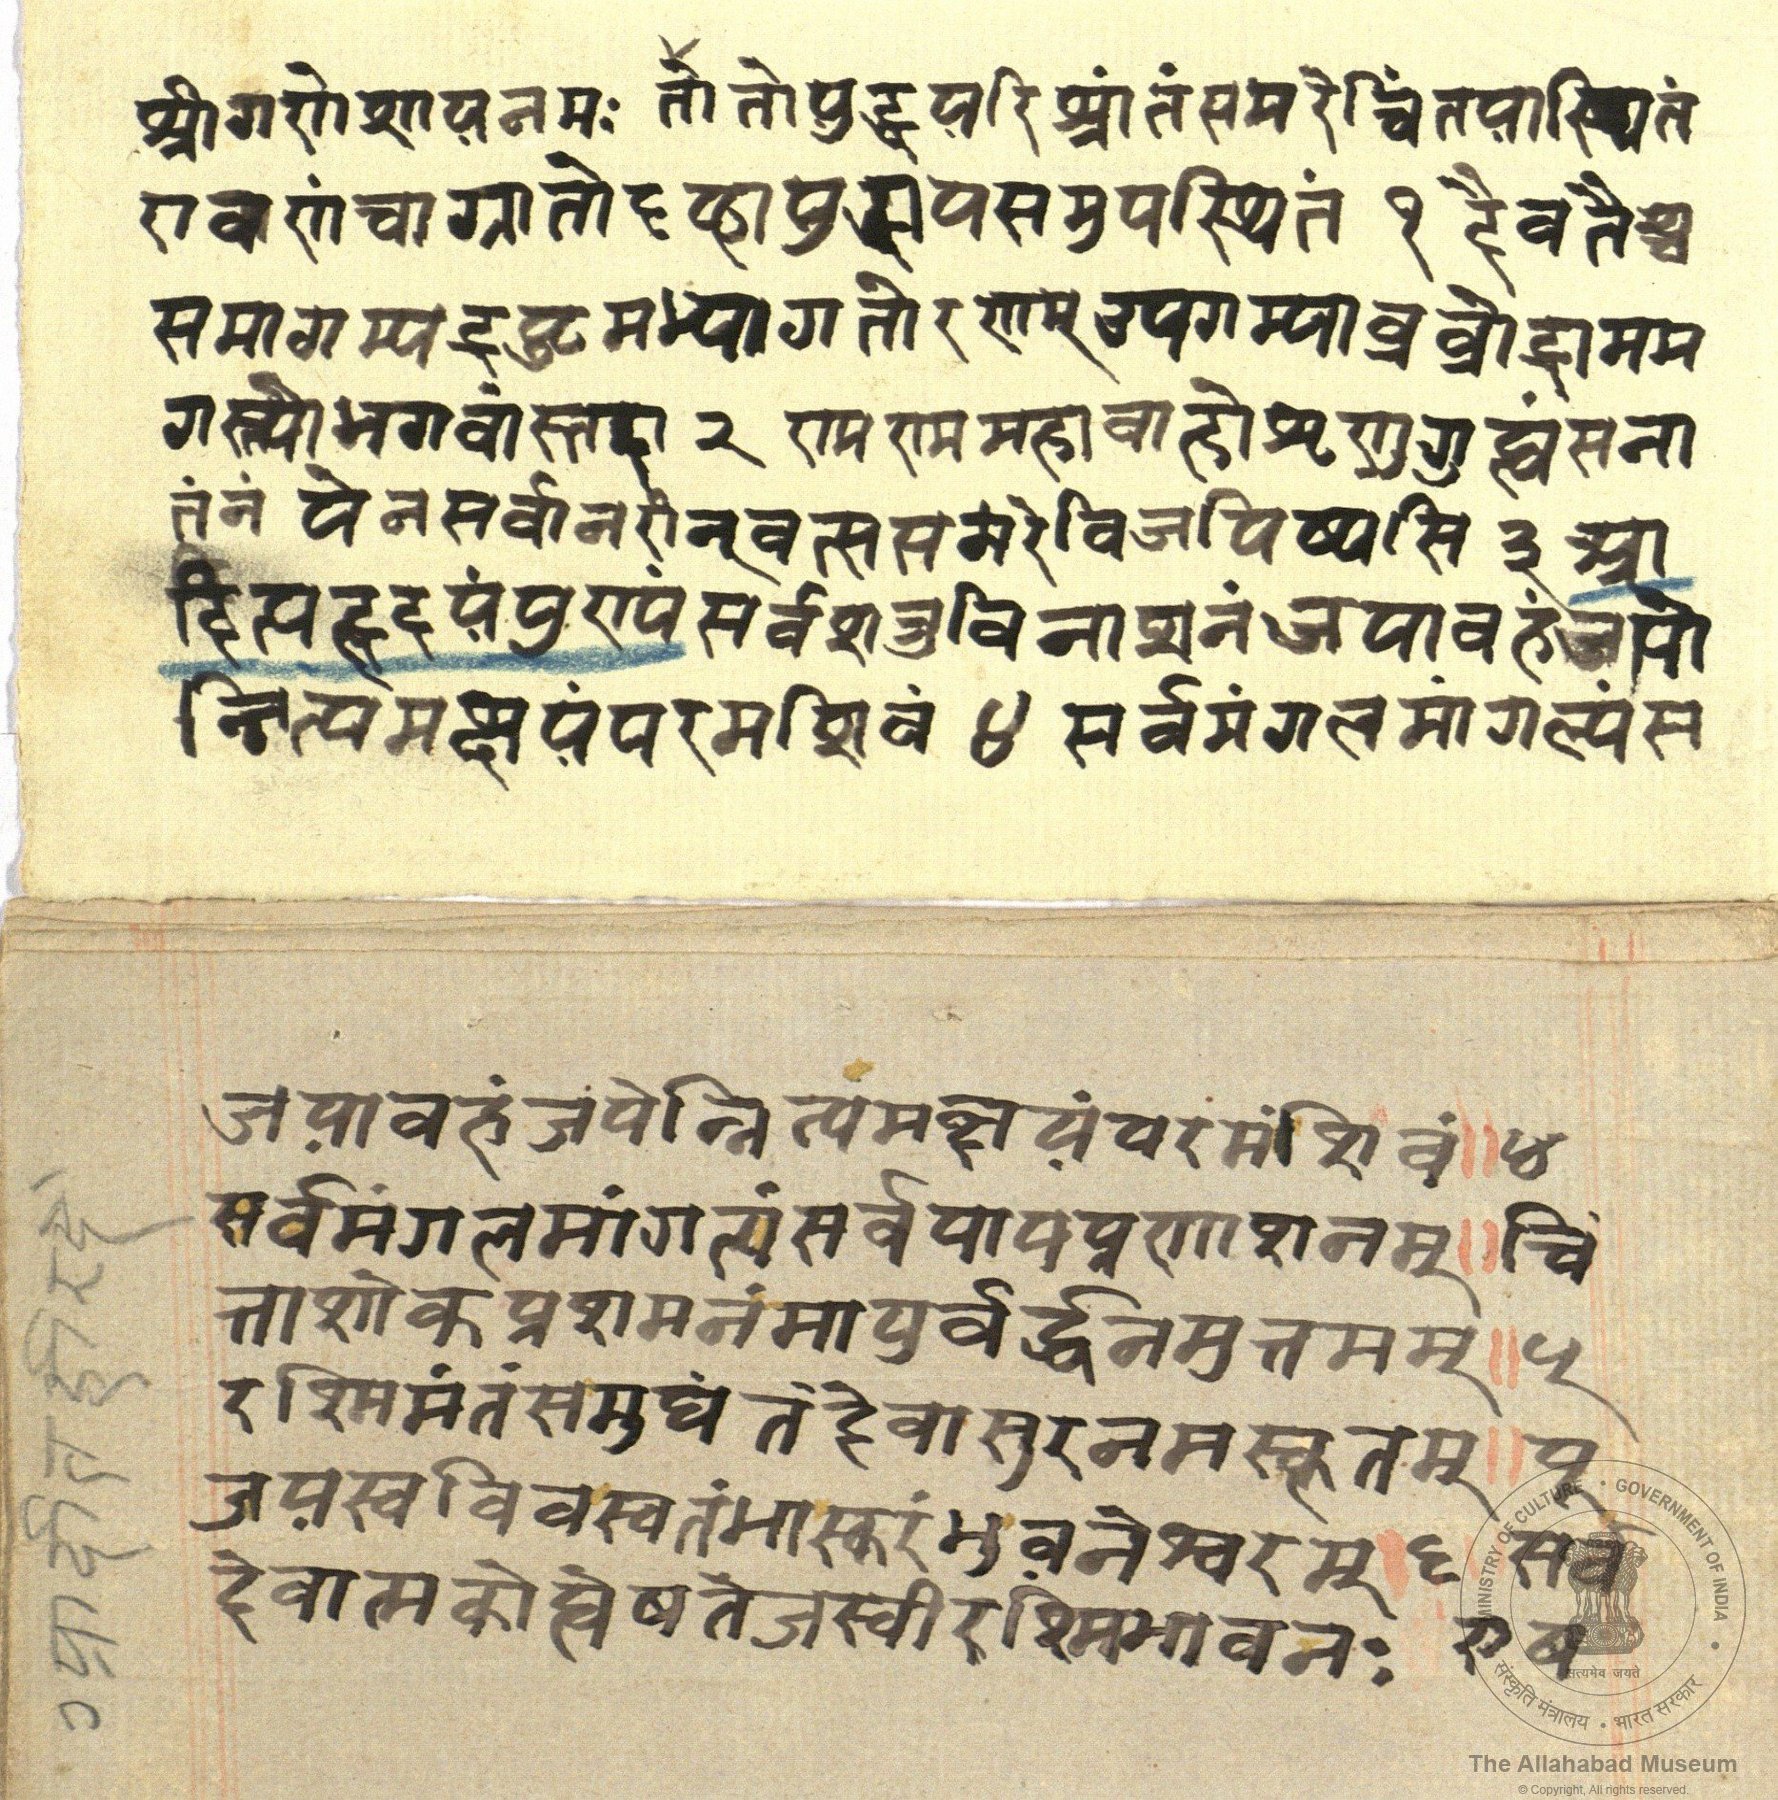 श्रीगणेशायनमः तोतोयुद्धपरिश्रांतंसमरेचिंतयास्थितं
रावणंचाग्रतोदृष्ट्वायुद्धायसमुपस्थितं १ दैवतैश्च
समागम्यद्रष्टुमभ्यागतोरणम् उपगम्याब्रवीद्राममम
गस्त्योभगवांस्तदा २ रामराममहावाहोश्रृणुगुह्यंसना
तंनं येनसर्वानरीन्वत्ससमरेविजयिष्यसि ३ आ
दित्यहृदयंपुण्यंसर्वशत्रुविनाशनंजयावहंजपे
न्नित्यमक्षयंपरमशिवं ४ सर्वमंगलमांगल्यंस
जयावहंजपेन्नित्यमक्षयंपरमंशिवं॥४
सर्वमंगलमांगल्यंसर्वपापप्रणाशनम्॥चिं
ताशोकप्रशमनंमायुर्वर्द्धनमुत्तमम्॥५
रश्मिमंतंसमुद्यंतंदेवासुरनमस्कृतम्॥पू
जयस्वविवस्वतंभास्करंभुवनेश्वरम्॥६॥सर्व
देवात्मकोह्येषतेजस्वीरश्मिभावनः एष
MINISTRY OF CULTURE • GOVERNMENT OF INDIA
सत्यमेव जयते
संस्कृति मंत्रालय • भारत सरकार
The Allahabad Museum
© Copyright, All rights reserved.